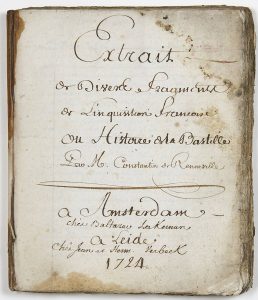 Extrait
de Divers Fragments
de L'inquisition Francoise
ou Histoire de la Bastille
Par Mr. Constantin de Renneville
a Amsterdam
chés Baltazar
a Leide
chés Jean et Herm. Verbeek
1724.